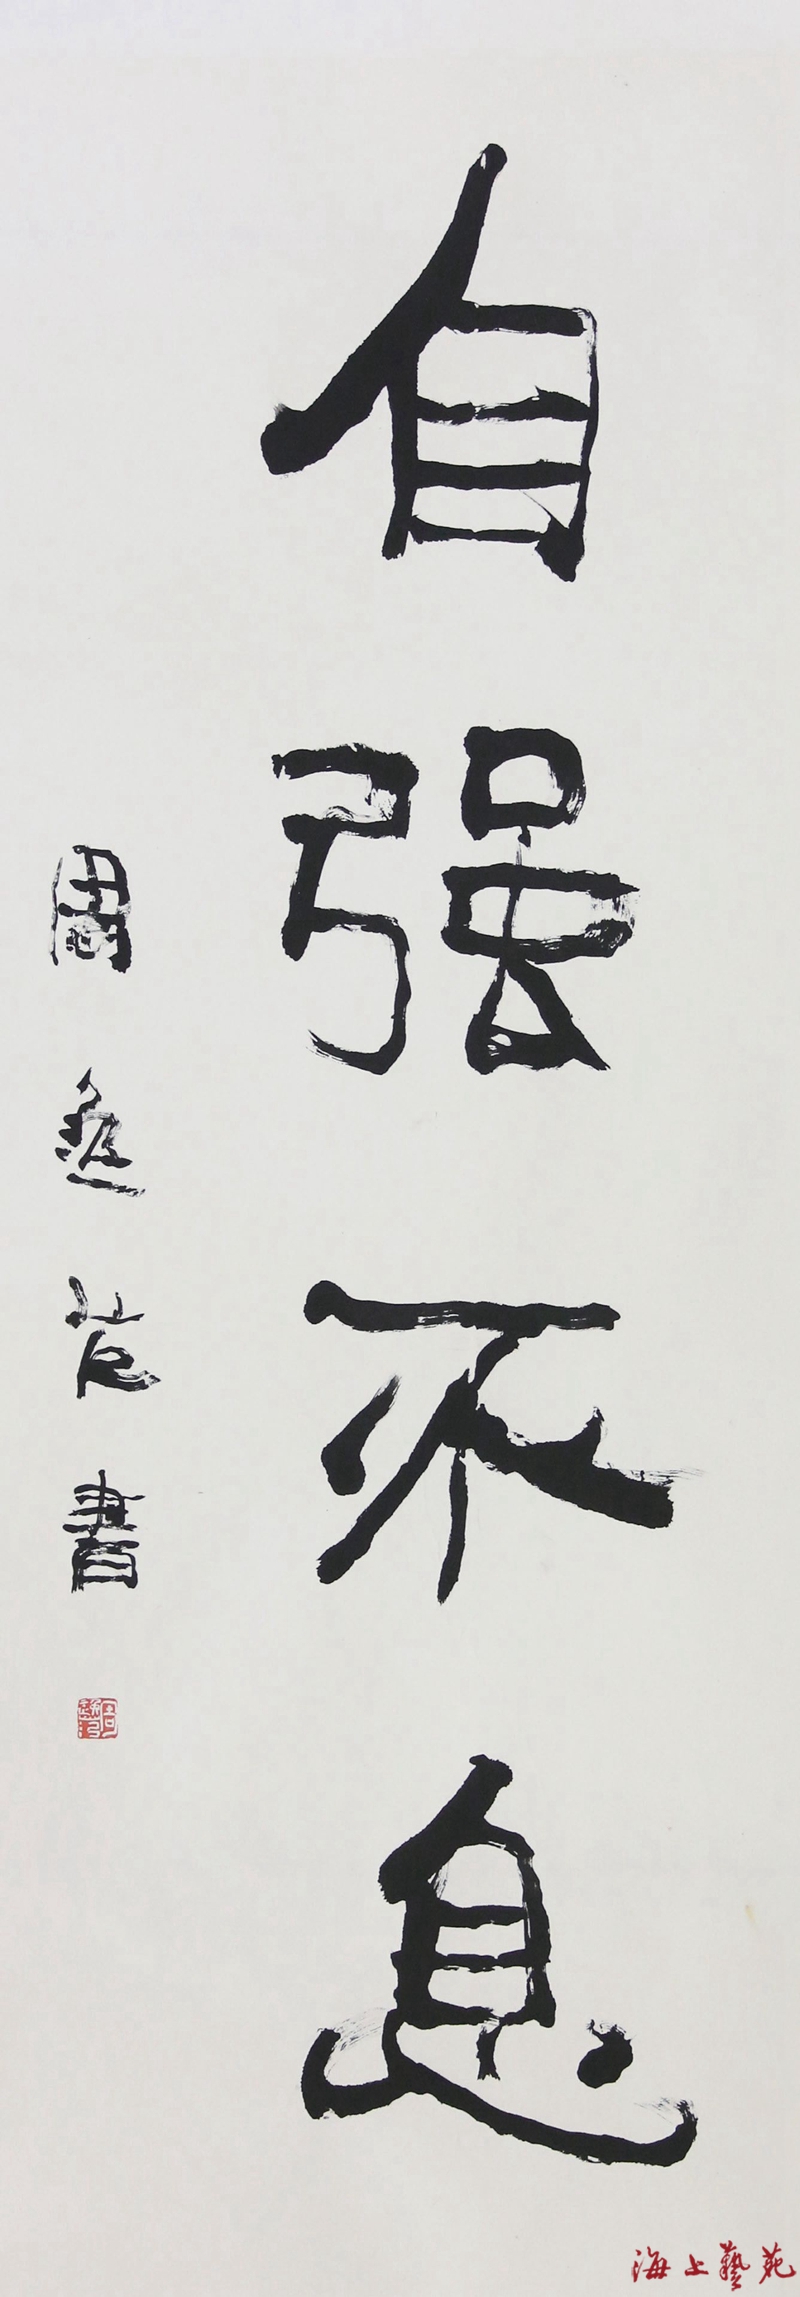 自强不息
周慧珺書
海上藝苑